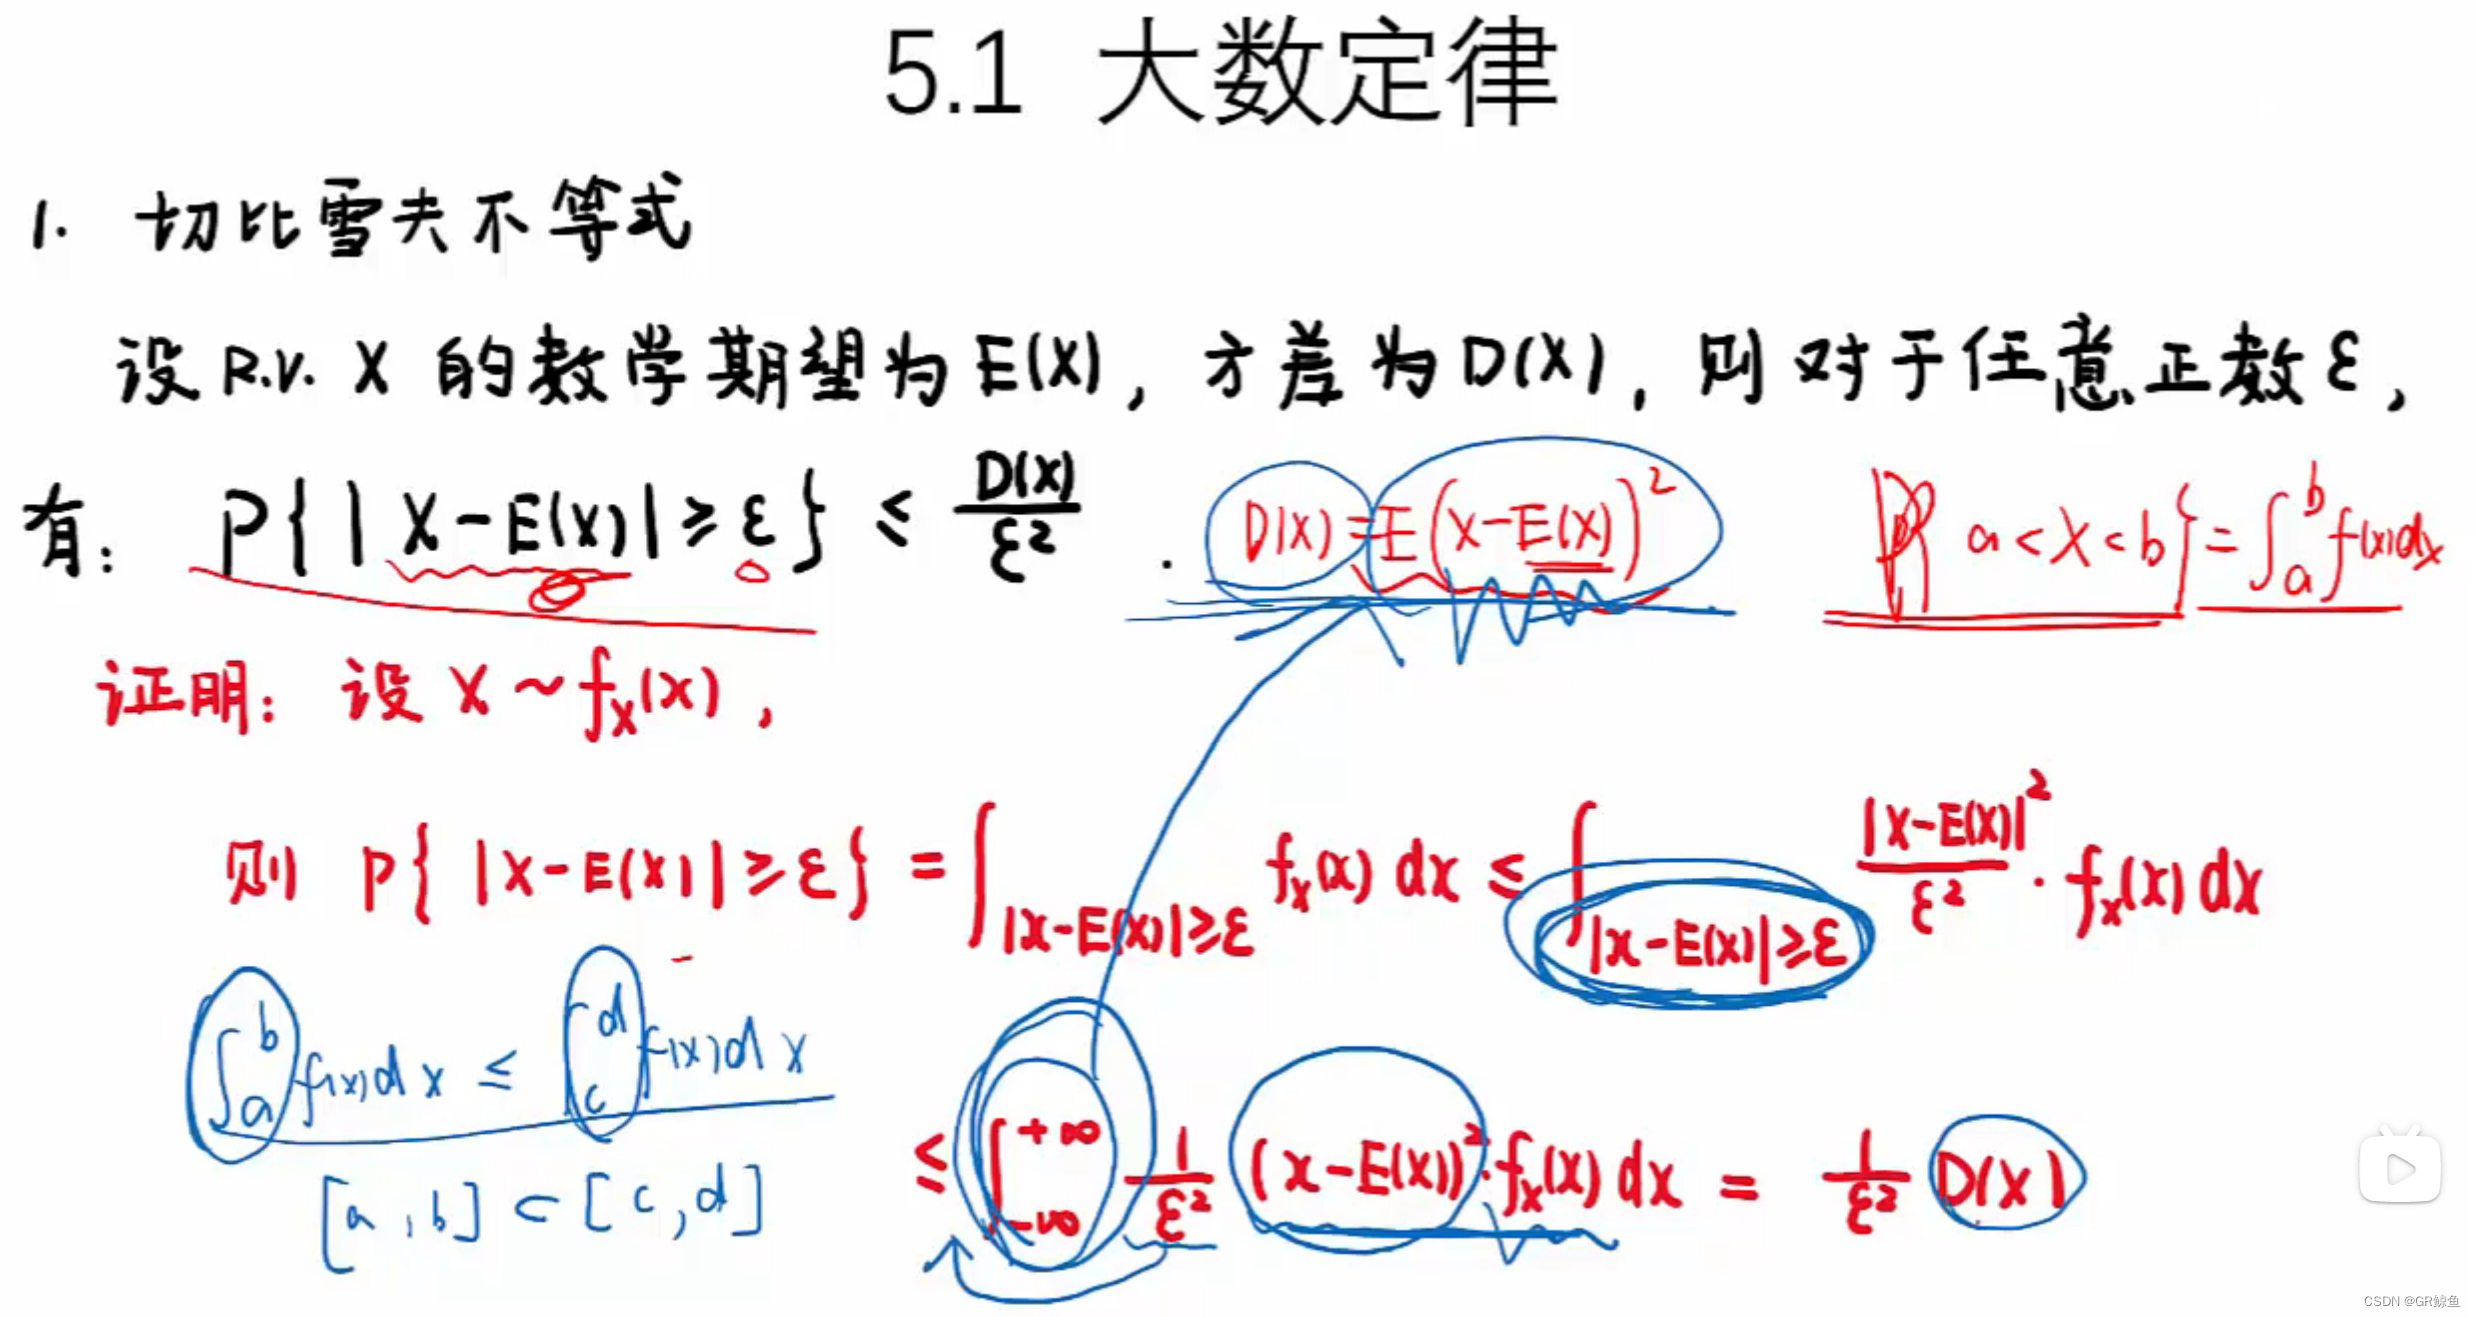 5.1 大数定律
1. 切比雪夫不等式
设 R.V. X 的数学期望为 E(X), 方差为 D(X), 则对于任意正数 ε,
有: P{|X-E(X)|≥ε} ≤ D(X)/ε² . D(X)=E(X-E(X))² P{a<X<b}=∫_a^b f(x)dx
证明: 设 X~f_X(x),
则 P{|X-E(X)|≥ε} = ∫_{|x-E(X)|≥ε} f_X(x) dx ≤ ∫_{|x-E(X)|≥ε} |X-E(X)|²/ε² · f_X(x) dx
∫_a^b f(x)dx ≤ ∫_c^d f(x)dx
≤ ∫_{-∞}^{+∞} 1/ε² (x-E(X))²·f_X(x) dx = 1/ε² D(X)
[a,b]⊂[c,d]
CSDN @GR鲸鱼